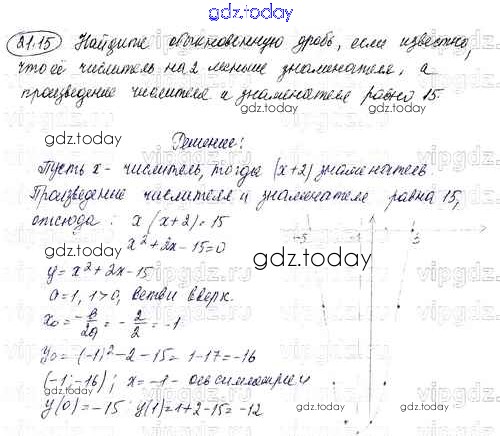 gdz.today
21.15 Найдите обыкновенную дробь, если известно,
что её числитель на 2 меньше знаменателя, а
произведение числителя и знаменателя равно 15.
gdz.today
gdz.today
Решение:
Пусть x - числитель, тогда (x+2) знаменател
Произведение числителя и знаменателя равна 15,
отсюда: x(x+2)=15
x²+2x-15=0
y=x²+2x-15
a=1, 1>0, ветви вверх.
x₀=-в/2a=-2/2=-1
y₀=(-1)²-2-15=1-17=-16
(-1;-16); x=-1 - ось симметрии
y(0)=-15 y(1)=1+2-15=-12
-5 -1 3
gdz.today
gdz.today
gdz.today
gdz.today
gdz.today
vipgdz